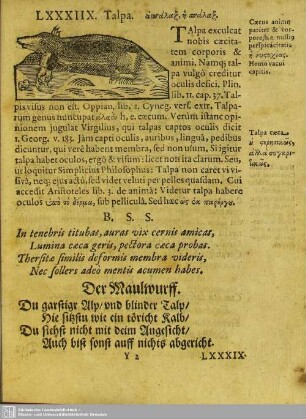 LXXXIIX. Talpa. ἀσπάλαξ, ἢ σπάλαξ.
TAlpa exculcat
nobis cæcita-
tem corporis &
animi. Namq; tal-
pa vulgò creditur
oculis defici. Plin.
lib. 11. cap. 37. Tal-
pis visus non est. Oppian, lib, 2. Cyneg. verf. extr. Talpa-
rum genus nuncupat ἀλαὸν h. e. cæcum. Verùm istanc opi-
nionem jugulat Virgilius, qui talpas captos oculis dicit
1. Georg. v. 183. Jam capti oculis, auribus, linguâ, pedibus
dicuntur, qui verè habent membra, sed non usum, Si igitur
talpa habet oculos, ergò & visum: licet non ita clarum. Seu,
ut loquitur Simplicius Philosophus: Talpa non caret vi vi-
sivâ, neq; ejus actû, sed videt veluti per pelles quasdam. Cui
accedit Aristoteles lib. 3. de animâ: Videtur talpa habere
oculos ὑπὸ τὸ δέρμα, sub pelliculâ, Sed hæc ὡς ἐκ παρέργου.
Cæcus animo
pariter & cor-
pore, sine nullis
perspicacitatis
Homo vacui
capitis.
Talpa cæca
B. S. S.
In tenebris titubas, auras vix cernis amicas,
Lumina cæca geris, pectora cæca probas.
Thersitæ similis deformis membra videris,
Nec sollers adeò mentis acumen habes.
Der Maulwurff.
Du garstigr Alp/ und blinder Talp/
Hie sitzstu wie ein töricht Kalb/
Du siehst nicht mit deim Angesicht/
Auch bist sonst auff nichts abgericht.
Y 2 LXXXIX.